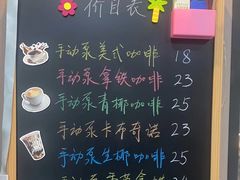 价目表
手动泵美式咖啡 18
手动泵拿铁咖啡 23
手动泵青椰咖啡 25
手动泵卡布奇诺 23
手动泵生椰咖啡 25
手动泵